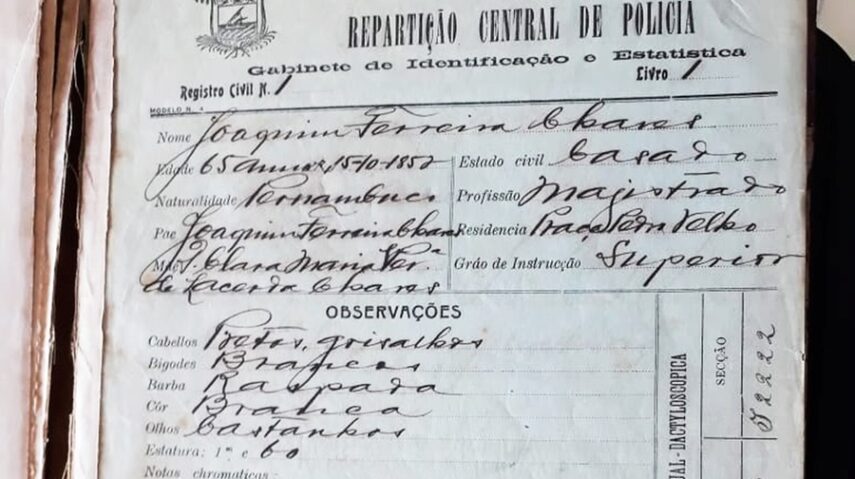 REPARTIÇÃO CENTRAL DE POLICIA
Gabinete de Identificação e Estatistica
Registro Civil N. 1
Livro 1
MODELO N. 4
Nome Joaquim Ferreira Chaves
Edade 65 annos, 15-10-1852
Estado civil Casado
Naturalidade Pernambuco
Profissão Magistrado
Pae Joaquim Ferreira Chaves
Residencia Praça Pedro Velho
Mãe D. Clara Maria Per.ª
de Lacerda Chaves
Gráo de Instrucção Superior
OBSERVAÇÕES
Cabellos Pretos, grisalhos
Bigodes Brancos
Barba Raspada
Côr Branca
Olhos Castanhos
Estatura: 1m e 60
Notas chromaticas:
UAL-DACTYLOSCOPICA
SECÇÃO
2222